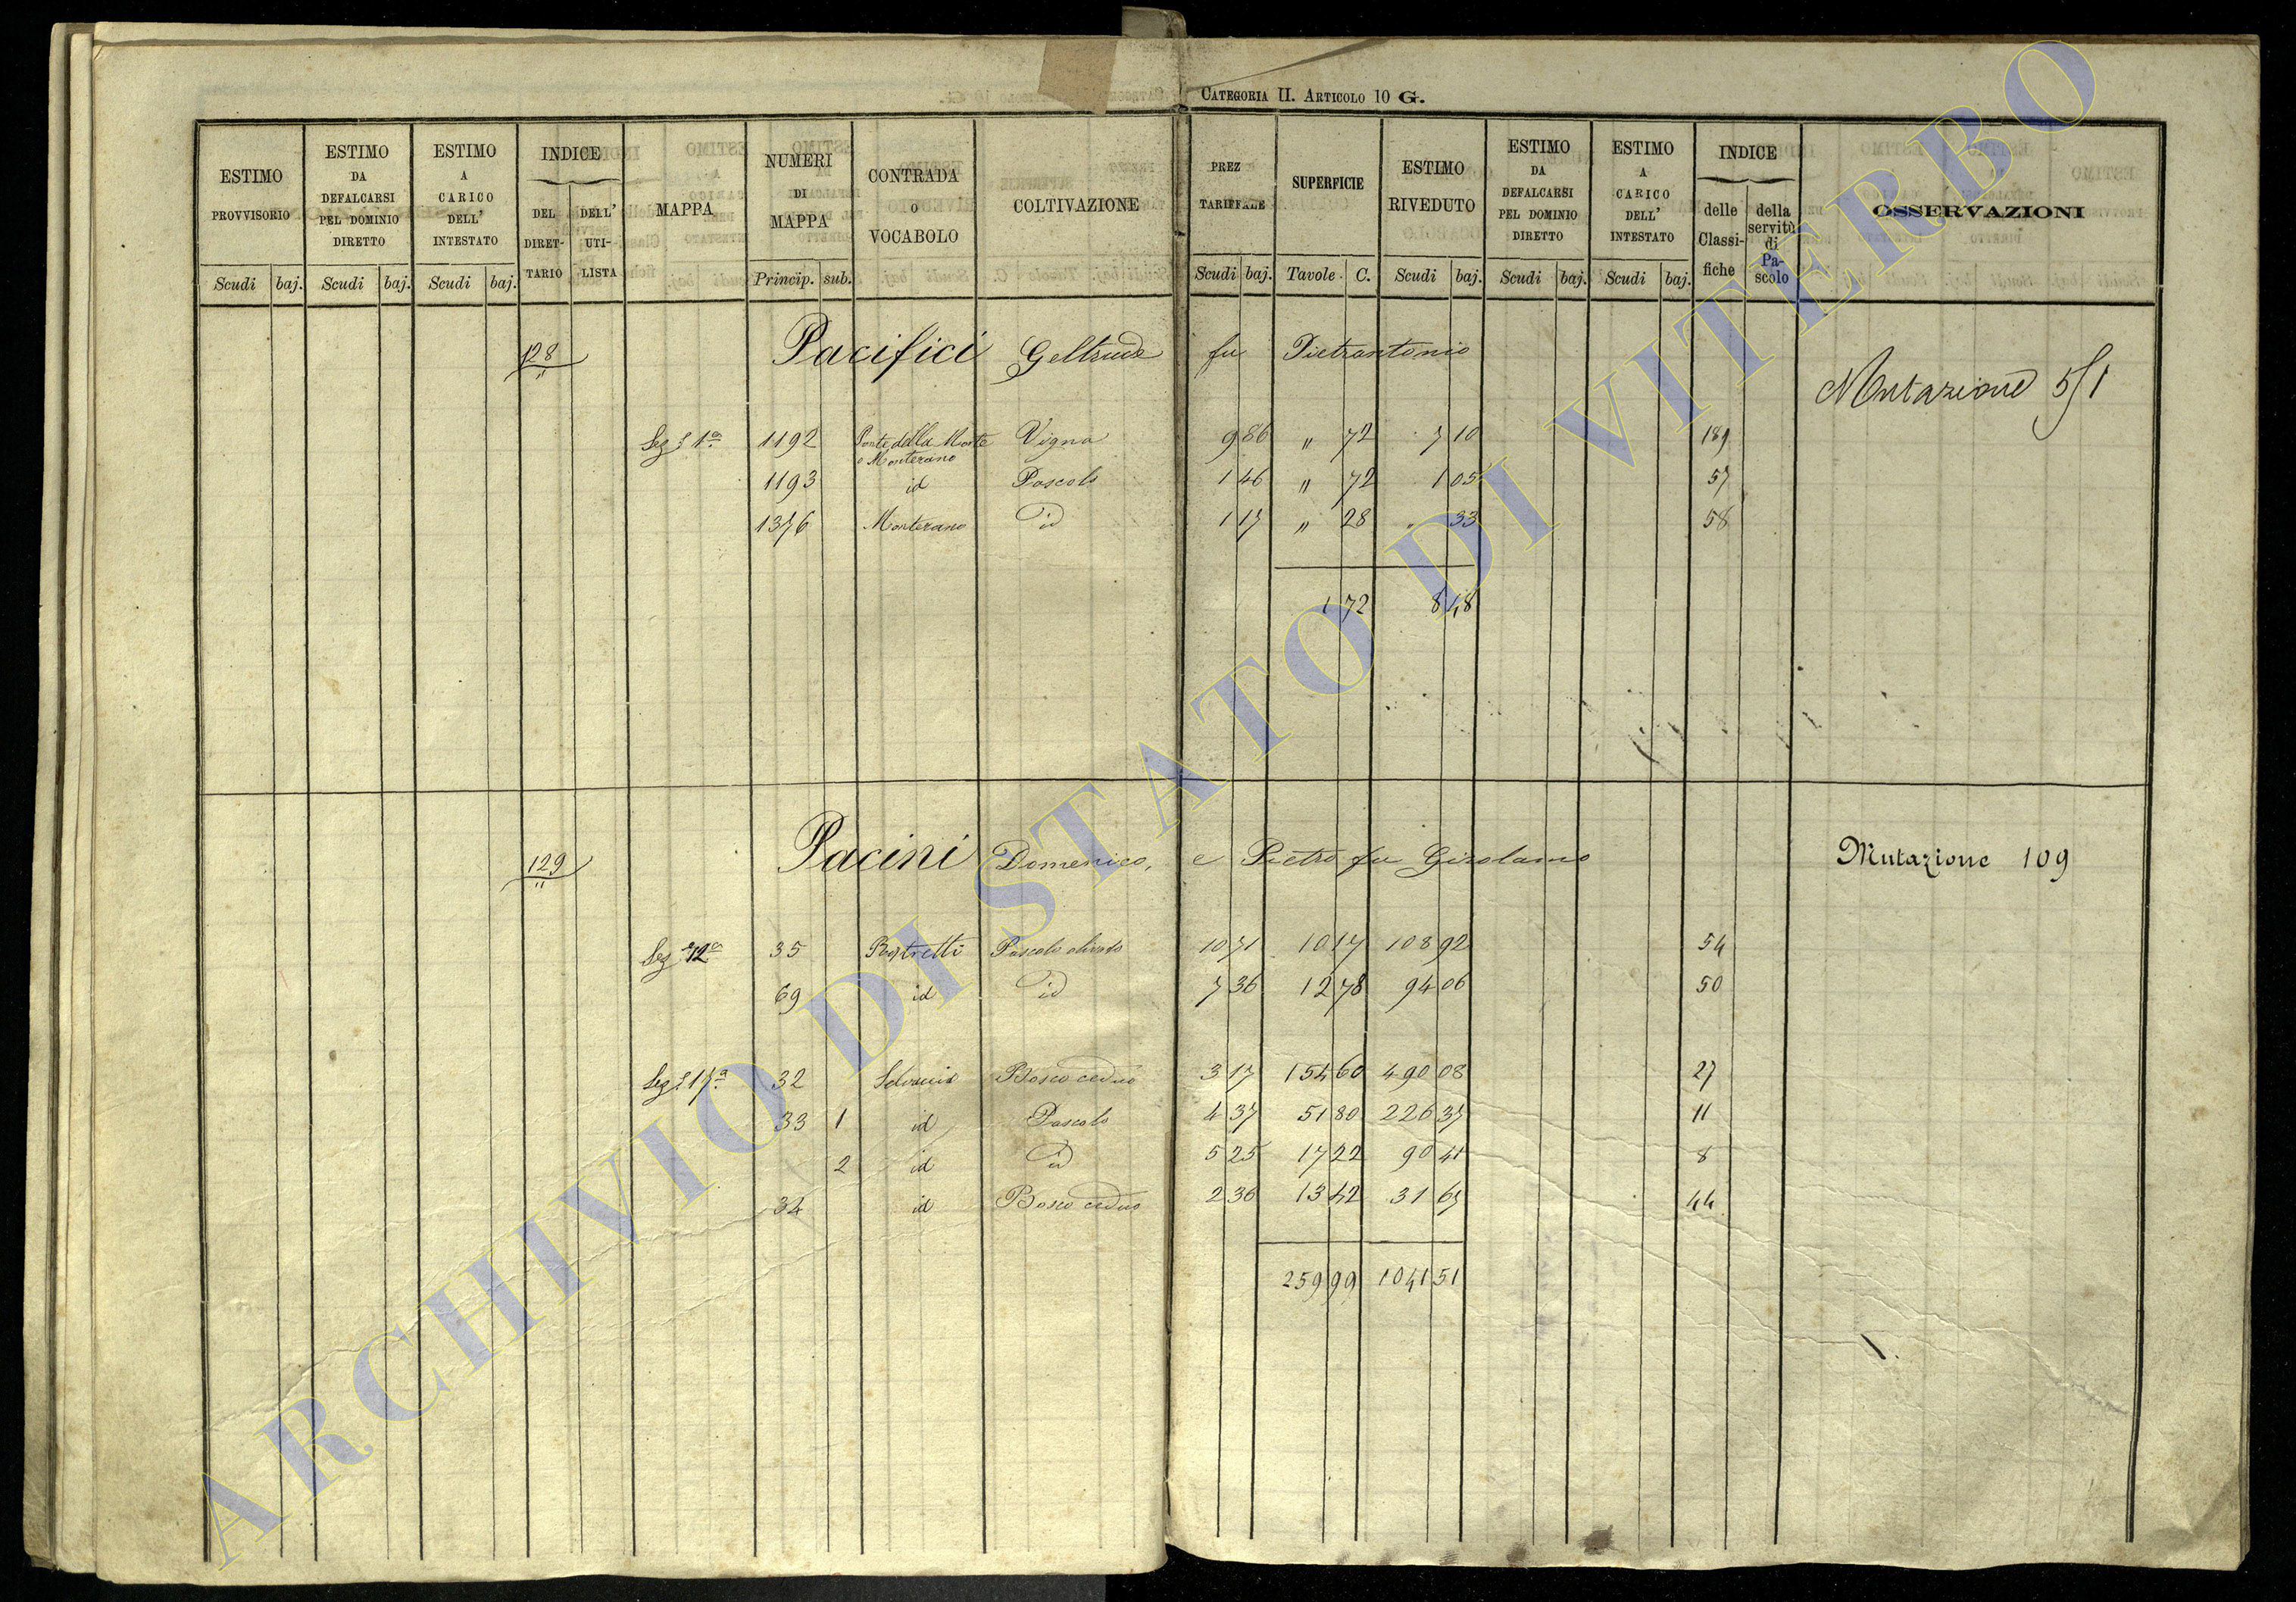 CATEGORIA II. ARTICOLO 10 G.
ESTIMO PROVVISORIO
ESTIMO DA DEFALCARSI PEL DOMINIO DIRETTO
ESTIMO A CARICO DELL' INTESTATO
INDICE
DEL DIRET-TARIO
DELL' UTI-LISTA
MAPPA
NUMERI DI MAPPA
CONTRADA O VOCABOLO
COLTIVAZIONE
PREZ TARIFFALE
SUPERFICIE
ESTIMO RIVEDUTO
ESTIMO DA DEFALCARSI PEL DOMINIO DIRETTO
ESTIMO A CARICO DELL' INTESTATO
INDICE
delle Classi-fiche
della servitù di Pa-scolo
OSSERVAZIONI
Scudi baj. Scudi baj. Scudi baj. Princip. sub. Scudi baj. Tavole C. Scudi baj. Scudi baj. Scudi baj.
128 Pacifici Geltrude fu Pietrantonio
Mutazione 51
Sez.e 1a 1192 Ponte della Morte Vigna 9 86 " 72 7 10 189
o Monterano
1193 id Pascolo 1 46 " 72 1 05 57
1376 Monterano id 1 17 " 28 " 33 58
1 72 8 48
129 Pacini Domenico, e Pietro fu Girolamo Mutazione 109
Sez.e 12a 35 Pascolo olivato 10 71 10 17 108 92 54
69 id id 7 36 12 78 94 06 50
Sez.e 17a 32 Bosco ceduo 3 17 154 60 490 08 27
33 1 id Pascolo 4 37 51 80 226 37 11
2 id id 5 25 17 22 90 41 8
34 id Bosco ceduo 2 36 13 42 31 67 44
259 99 1041 51
ARCHIVIO DI STATO DI VITERBO